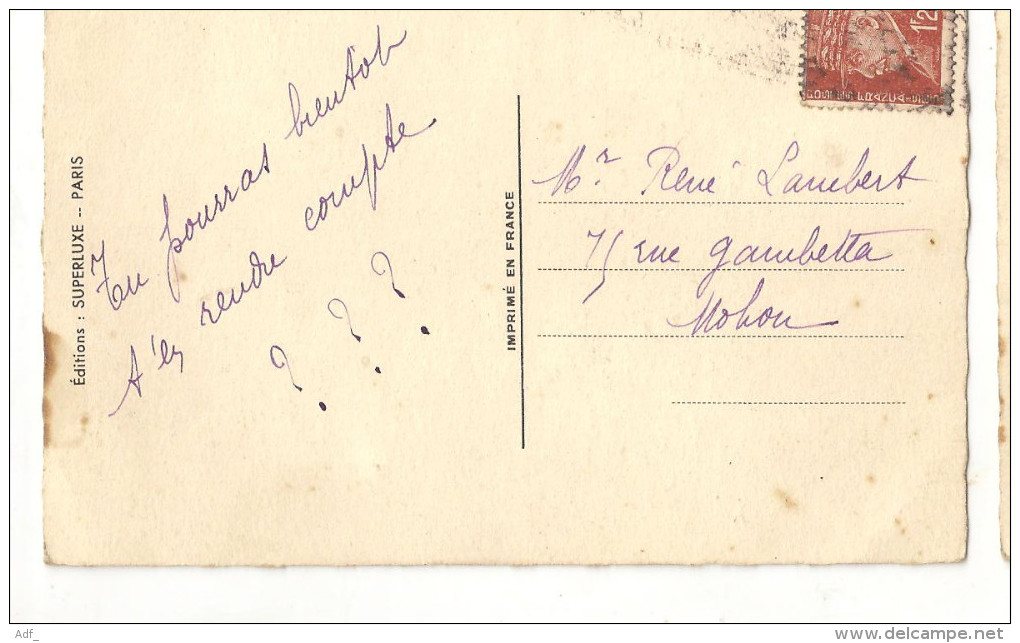 Éditions : SUPERLUXE -- PARIS
Tu pourras bientôt
t'en rendre compte
? ? ?
IMPRIMÉ EN FRANCE
1F2
POSTES FRANÇAISES
Mr. René Lambert
75 rue Gambetta
Mohon
Adf_
www.delcampe.net